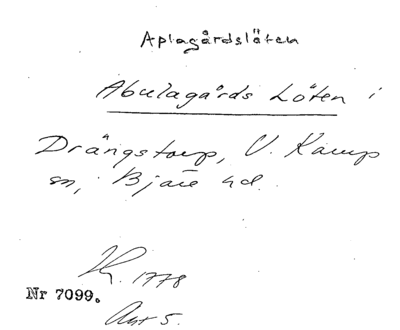 Aplagårdslöten
Abulagårds Löten i
Drängstorp, V. Karup
sn, Bjäre hd.
1778
Nr 7099.
Akt 5.